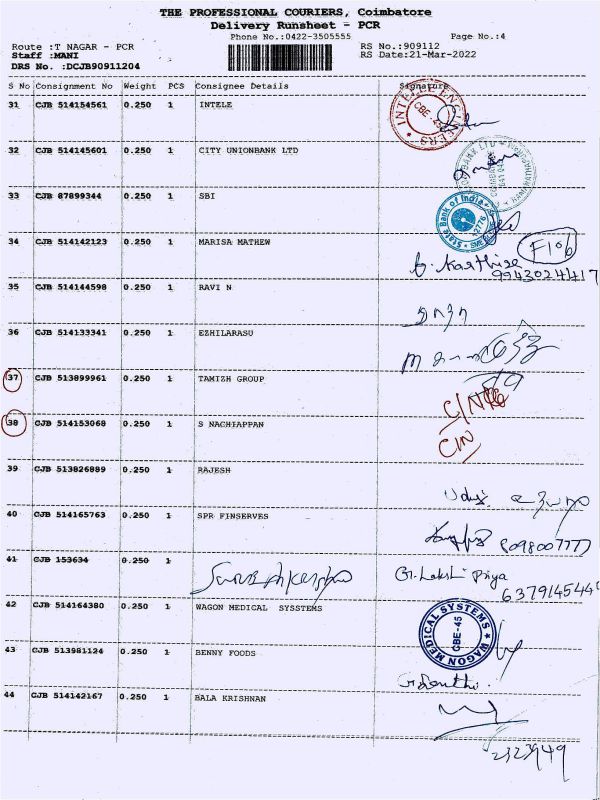 THE PROFESSIONAL COURIERS, Coimbatore
Delivery Runsheet - PCR
Phone No.:0422-3505555 Page No.:4
Route :T NAGAR - PCR RS No.:909112
Staff :MANI RS Date:21-Mar-2022
DRS No. :DCJB90911204
S No Consignment No Weight PCS Consignee Details Signature
31 CJB 514154561 0.250 1 INTELE
CBE - 45
32 CJB 514145601 0.250 1 CITY UNIONBANK LTD
33 CJB 87899344 0.250 1 SBI
State Bank of India
12776
34 CJB 514142123 0.250 1 MARISA MATHEW
F106
9943024417
35 CJB 514144598 0.250 1 RAVI N
36 CJB 514133341 0.250 1 EZHILARASU
37 CJB 513899961 0.250 1 TAMIZH GROUP
38 CJB 514153068 0.250 1 S NACHIAPPAN
C/N
39 CJB 513826889 0.250 1 RAJESH
40 CJB 514165763 0.250 1 SPR FINSERVES
8098007777
41 CJB 153634 0.250 1
G. Lakshi Priya
42 CJB 514164380 0.250 1 WAGON MEDICAL SYSSTEMS
WAGON MEDICAL SYSTEMS
CBE-45
43 CJB 513981124 0.250 1 BENNY FOODS
44 CJB 514142167 0.250 1 BALA KRISHNAN
2323949